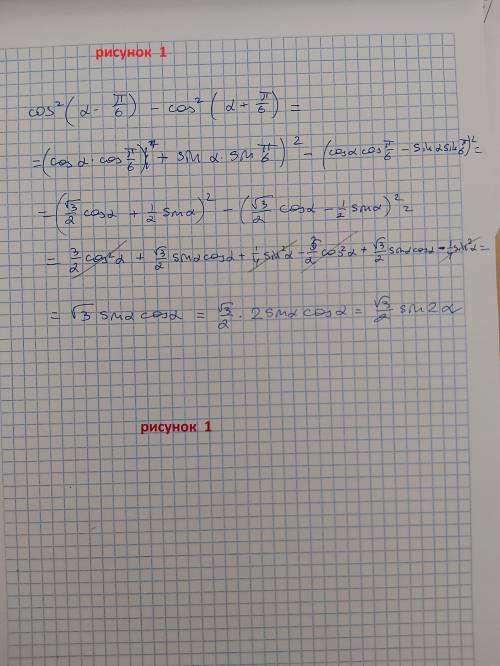 рисунок 1
cos²(α - π/6) - cos²(α + π/6) =
= (cos α · cos π/6 + sin α · sin π/6)² - (cosα cos π/6 - sinα sin π/6)² =
= (√3/2 cosα + 1/2 sinα)² - (√3/2 cosα - 1/2 sinα)² =
= 3/2 cos²α + √3/2 sinα cosα + 1/4 sin²α - 3/2 cos²α + √3/2 sinα cosα - 1/4 sin²α =
= √3 sinα cosα = √3/2 · 2 sinα cosα = √3/2 sin2α
рисунок 1